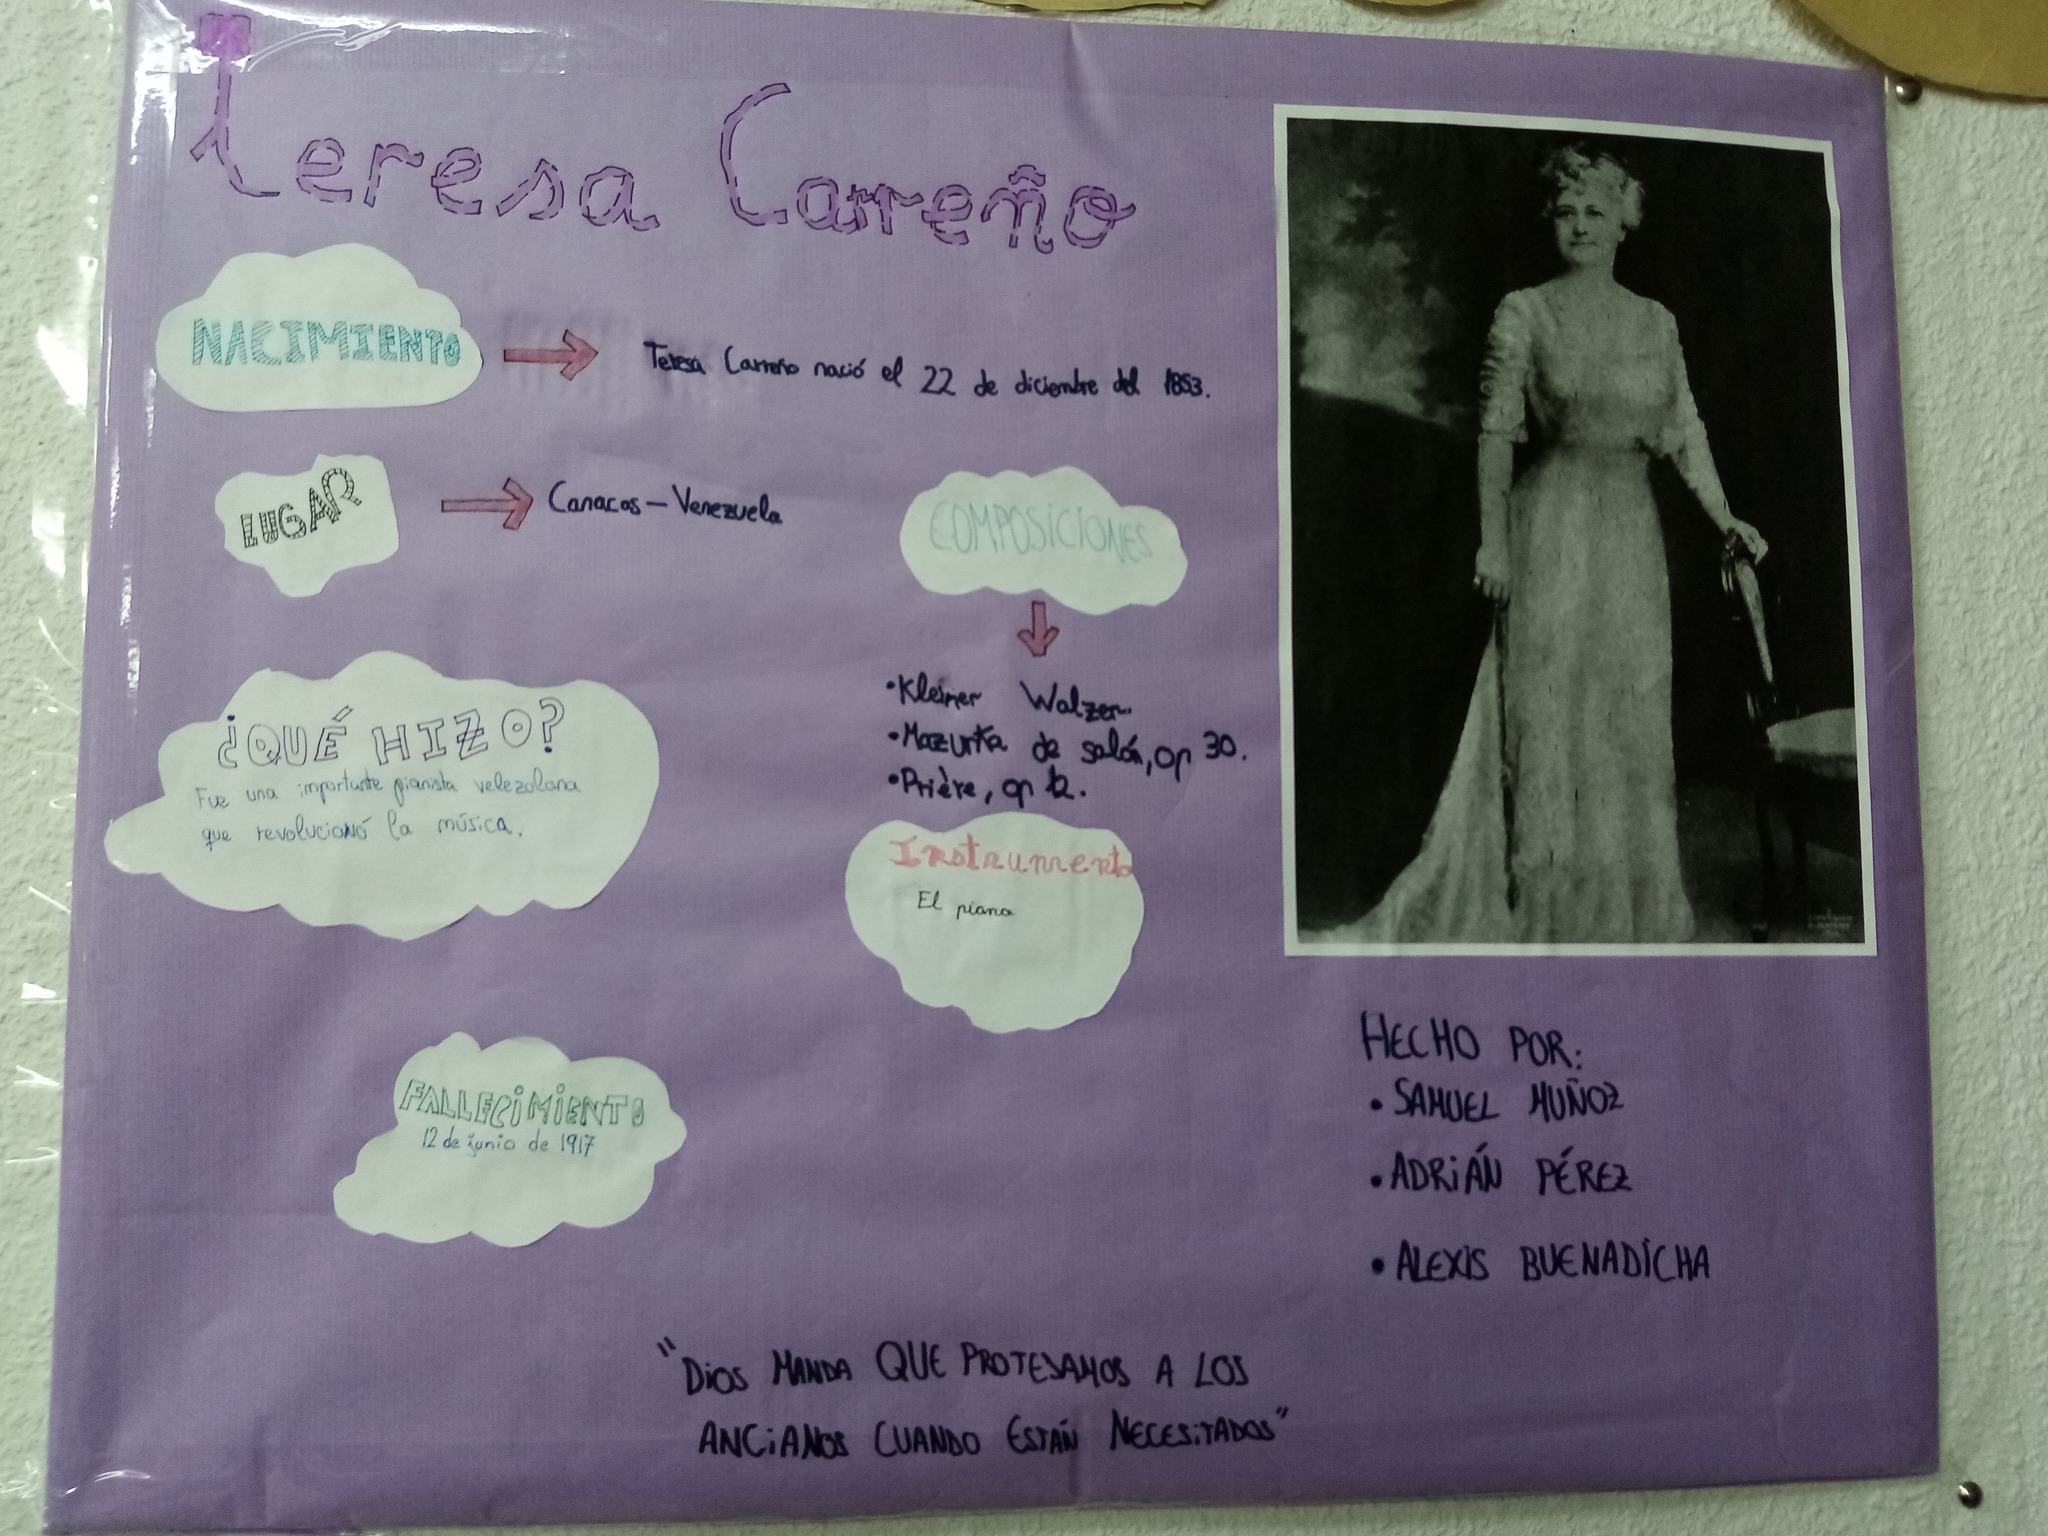 Teresa Carreño
NACIMIENTO
Teresa Carreño nació el 22 de diciembre del 1853.
LUGAR
Caracas - Venezuela
COMPOSICIONES
•Kleiner Walzer.
•Mazurka de salón, op 30.
•Prière, op 12.
¿QUÉ HIZO?
Fue una importante pianista velezolana
que revolucionó la música.
Instrumento
El piano
FALLECIMIENTO
12 de junio de 1917
HECHO POR:
•SAMUEL MUÑOZ
•ADRIÁN PÉREZ
•ALEXIS BUENADICHA
"DIOS MANDA QUE PROTEJAMOS A LOS
ANCIANOS CUANDO ESTÁN NECESITADOS"